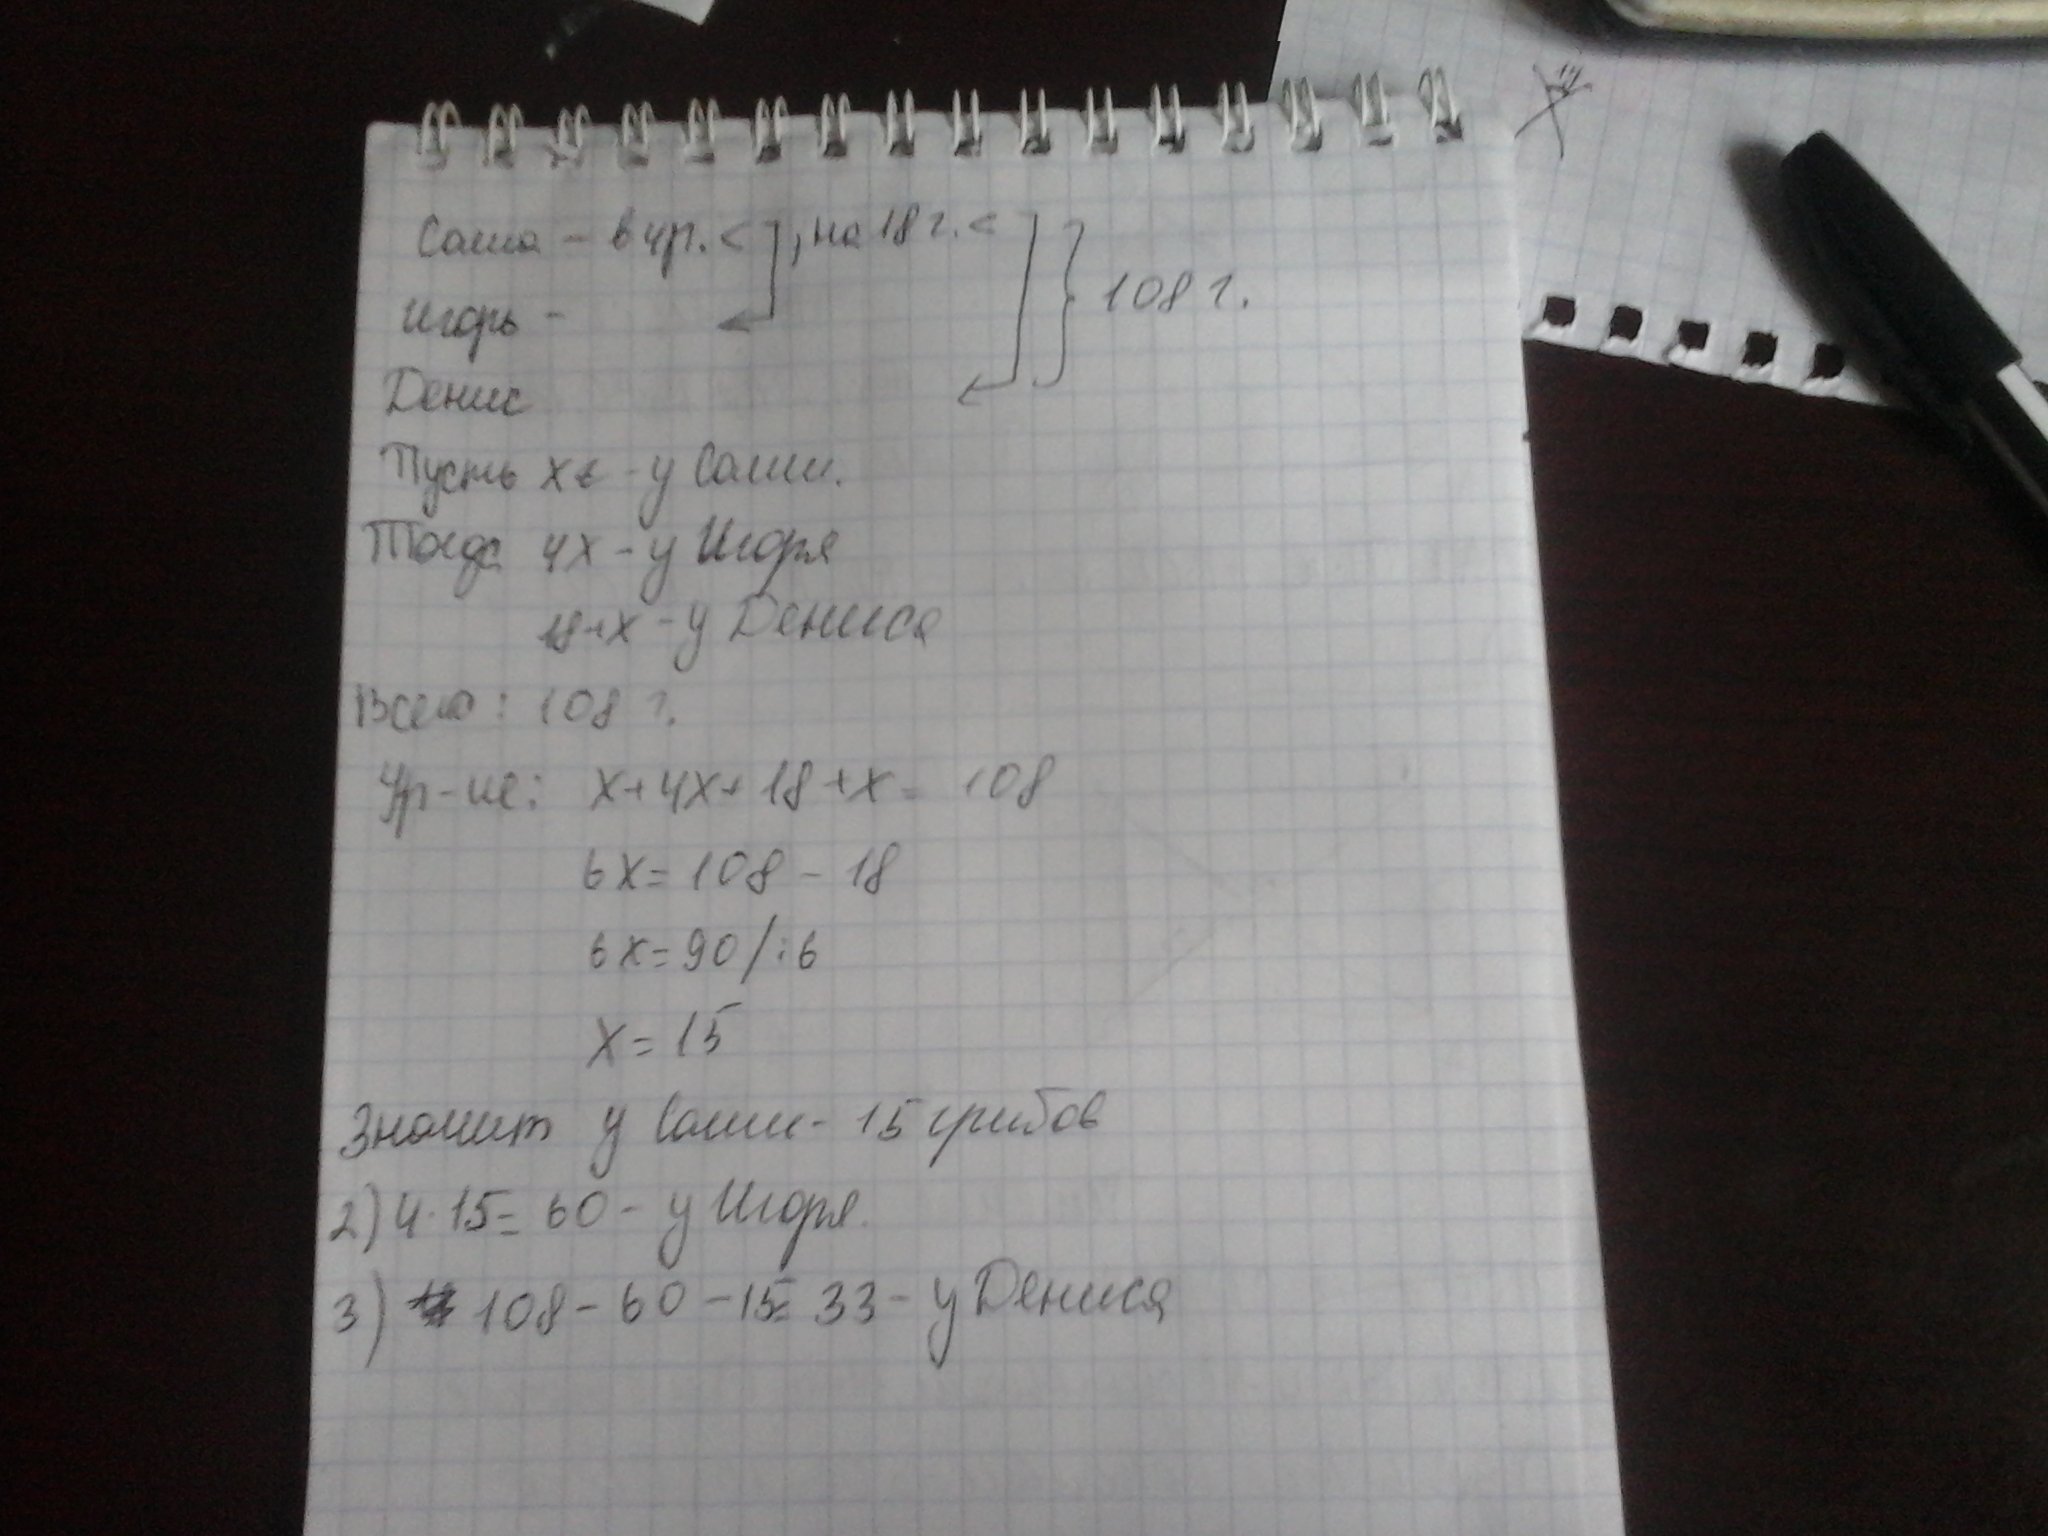 Саша – в 4р. <, на 18 г. <
Игорь –
108 г.
Денис
Пусть x г – у Саши.
Тогда 4x – у Игоря
18+x – у Дениса
Всего: 108 г.
Ур-ие: x+4x+18+x = 108
6x = 108 – 18
6x = 90 /:6
x = 15
Значит у Саши – 15 грибов
2) 4·15 = 60 – у Игоря.
3) 108 – 60 – 15 = 33 – у Дениса